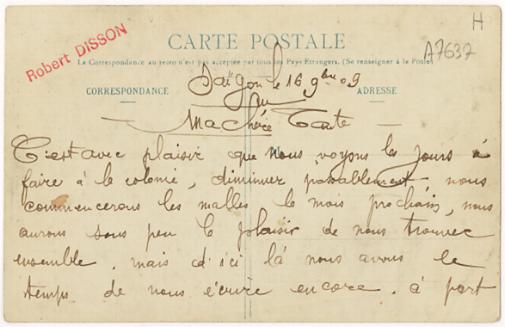 H
Robert DISSON
CARTE POSTALE
A7637
La Correspondance au recto n'est pas acceptée par tous les Pays Étrangers. (Se renseigner à la Poste)
Saïgon le 16 9bre 09
CORRESPONDANCE
ADRESSE
Ma chère Tante
C'est avec plaisir que nous voyons les jours à
faire à la colonie, diminuer passablement nous
commencerons les malles le mois prochain, nous
aurons sous peu le plaisir de nous trouver
ensemble. mais d'ici là nous avons le
temps de nous écrire encore. à part